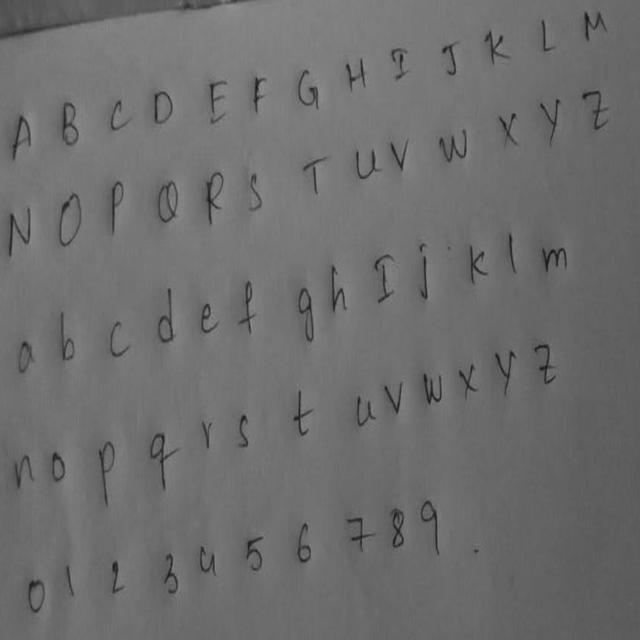 A B C D E F G H I J K L M
N O P Q R S T U V W X Y Z
a b c d e f g h I j k l m
n o p q r s t u v w x y z
0 1 2 3 4 5 6 7 8 9 .